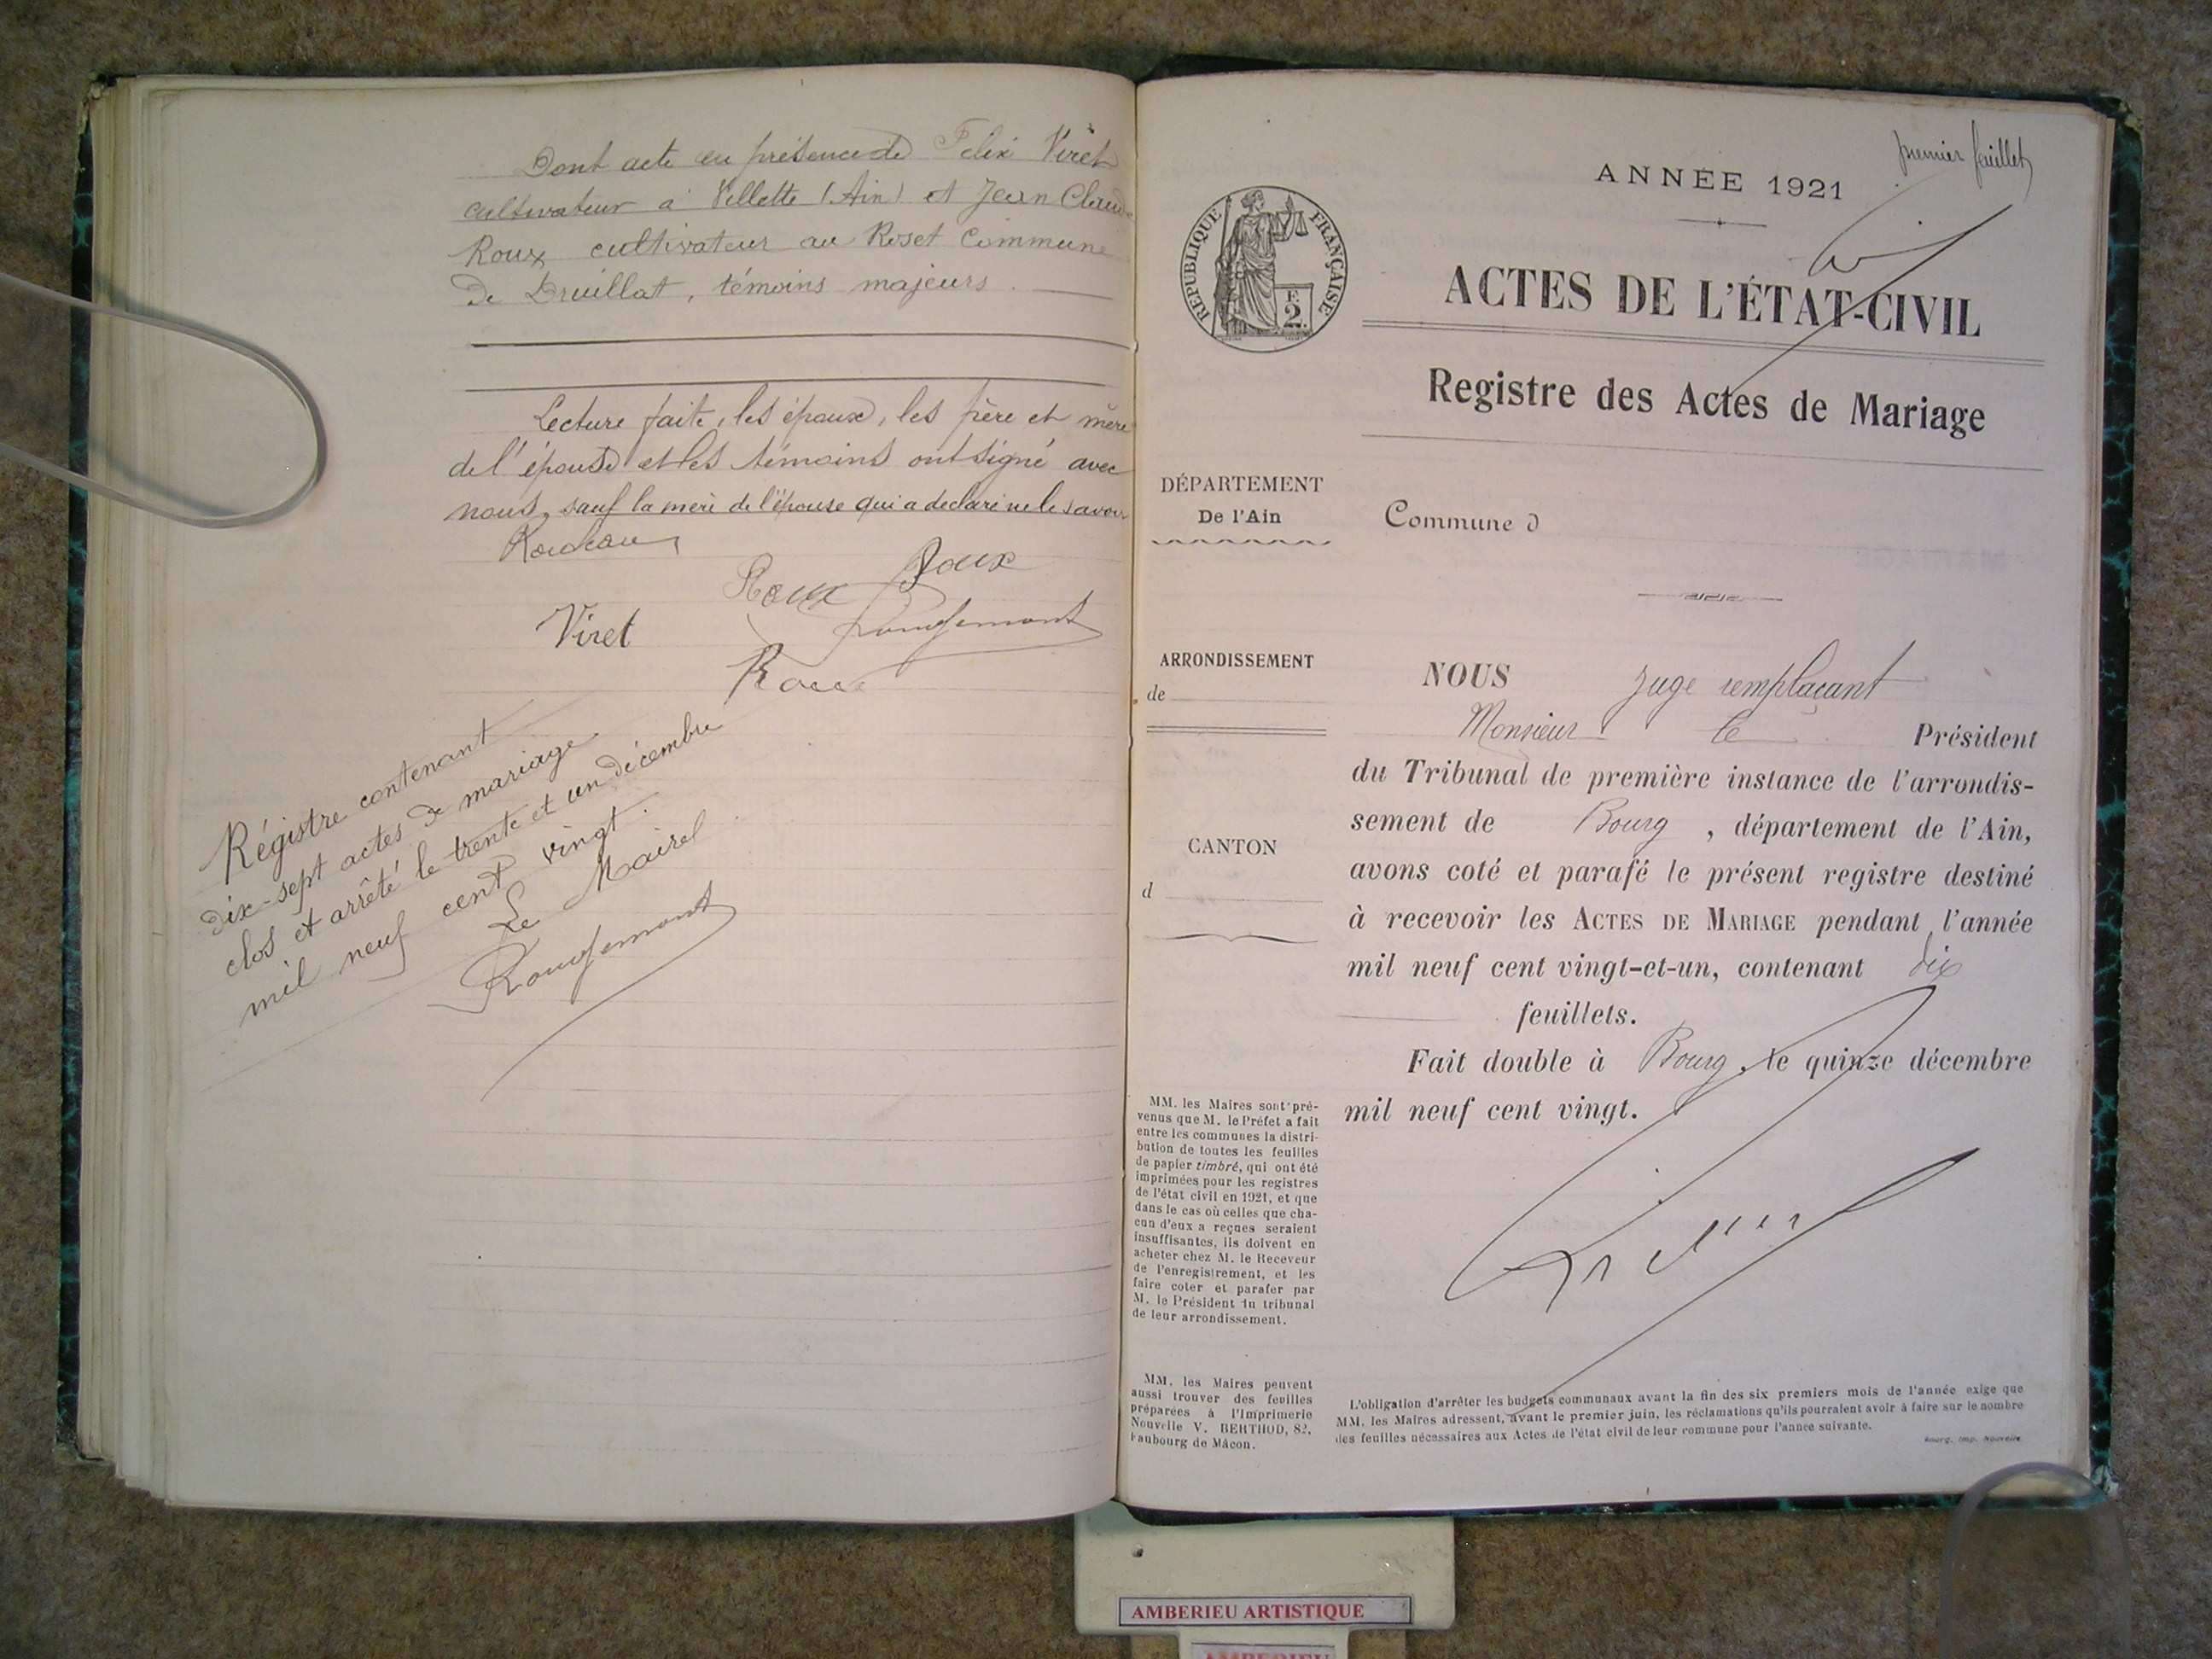 Dont acte en présence de Felix Viret
cultivateur à Villette (Ain) et Jean Claude
Roux cultivateur au Roset Commune
de Druillat, témoins majeurs.
Lecture faite, les époux, les père et mère
de l'épouse et les témoins ont signé avec
nous, sauf la mère de l'épouse qui a déclaré ne le savoir
Roux Roux
Viret Rougemont
Roux
Régistre contenant
dix-sept actes de mariage
clos et arrêté le trente et un décembre
mil neuf cent vingt.
Le Maire
Rougemont
premier feuillet
ANNÉE 1921
RÉPUBLIQUE FRANÇAISE
2
ACTES DE L'ÉTAT-CIVIL
Registre des Actes de Mariage
DÉPARTEMENT
De l'Ain
Commune d
ARRONDISSEMENT
de
CANTON
d
NOUS juge remplaçant
Monsieur le Président
du Tribunal de première instance de l'arrondis-
sement de Bourg, département de l'Ain,
avons coté et parafé le présent registre destiné
à recevoir les ACTES DE MARIAGE pendant l'année
mil neuf cent vingt-et-un, contenant dix
feuillets.
Fait double à Bourg, le quinze décembre
mil neuf cent vingt.
MM. les Maires sont pré-
venus que M. le Préfet a fait
entre les communes la distri-
bution de toutes les feuilles
de papier timbré, qui ont été
imprimées pour les registres
de l'état civil en 1921, et que
dans le cas où celles que cha-
cun d'eux a reçues seraient
insuffisantes, ils doivent en
acheter chez M. le Receveur
de l'enregistrement, et les
faire coter et parafer par
M. le Président du tribunal
de leur arrondissement.
MM. les Maires peuvent
aussi trouver des feuilles
préparées à l'Imprimerie
Nouvelle V. BERTHOD, 82,
Faubourg de Mâcon.
L'obligation d'arrêter les budgets communaux avant la fin des six premiers mois de l'année exige que
MM. les Maires adressent, avant le premier juin, les réclamations qu'ils pourraient avoir à faire sur le nombre
des feuilles nécessaires aux Actes de l'état civil de leur commune pour l'année suivante.
Bourg, Imp. Nouvelle
AMBERIEU ARTISTIQUE
AMBERIEU